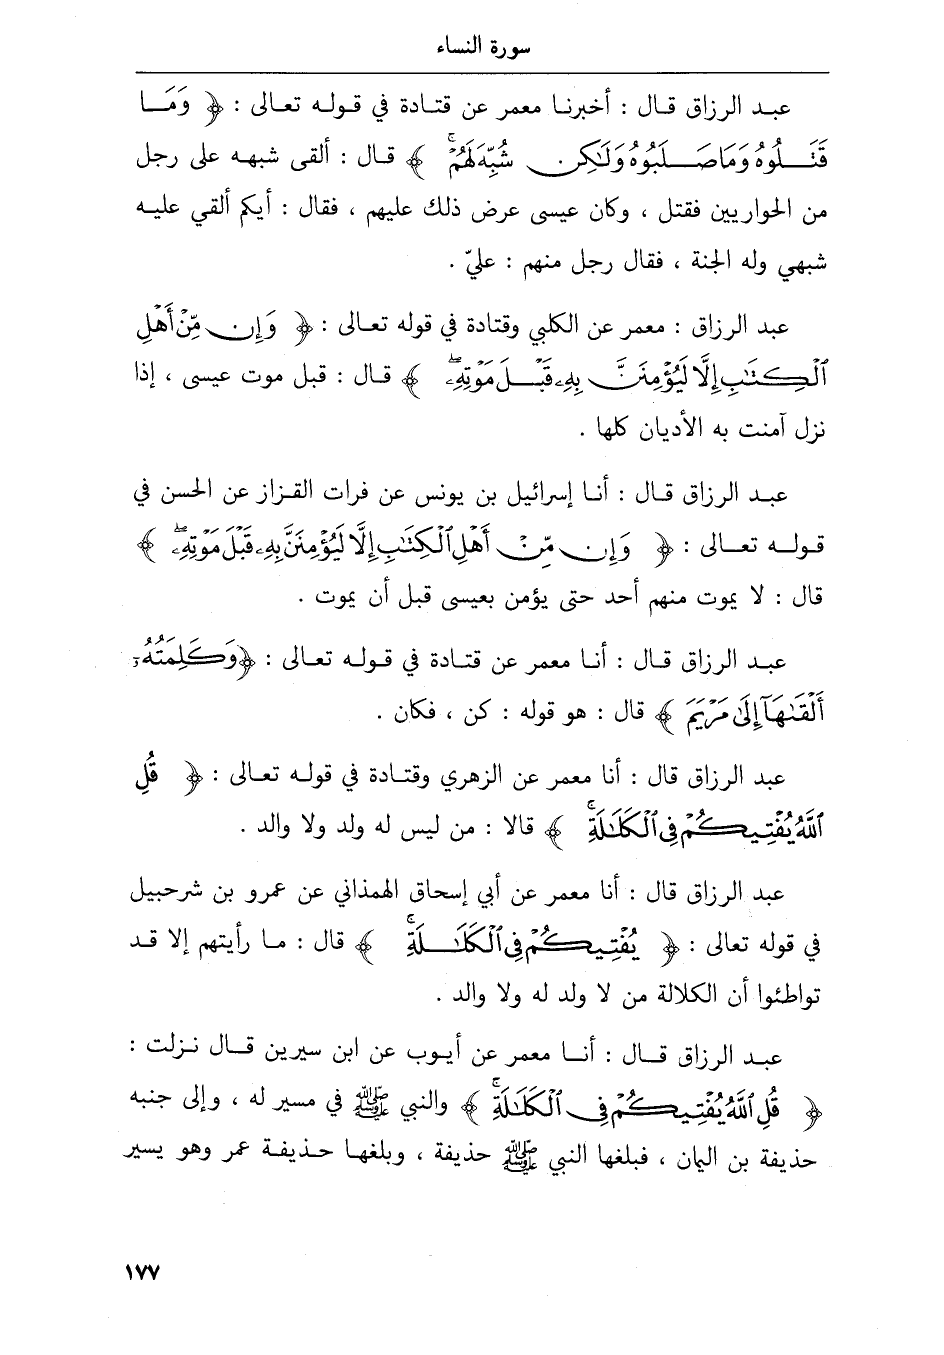 سورة النساء
عبد الرزاق قال : أخبرنا معمر عن قتادة في قوله تعالى : ﴿ وَمَا
قَتَلُوهُ وَمَا صَلَبُوهُ وَلَٰكِن شُبِّهَ لَهُمْ ۚ ﴾ قال : ألقى شبهه على رجل
من الحواريين فقتل ، وكان عيسى عرض ذلك عليهم ، فقال : أيكم ألقي عليه
شبهي وله الجنة ، فقال رجل منهم : عليّ .
عبد الرزاق : معمر عن الكلبي وقتادة في قوله تعالى : ﴿ وَإِن مِّنْ أَهْلِ
ٱلْكِتَٰبِ إِلَّا لَيُؤْمِنَنَّ بِهِۦ قَبْلَ مَوْتِهِۦ ۖ ﴾ قال : قبل موت عيسى ، إذا
نزل آمنت به الأديان كلها .
عبد الرزاق قال : أنا إسرائيل بن يونس عن فرات القزاز عن الحسن في
قوله تعالى : ﴿ وَإِن مِّنْ أَهْلِ ٱلْكِتَٰبِ إِلَّا لَيُؤْمِنَنَّ بِهِۦ قَبْلَ مَوْتِهِۦ ۖ ﴾
قال : لا يموت منهم أحد حتى يؤمن بعيسى قبل أن يموت .
عبد الرزاق قال : أنا معمر عن قتادة في قوله تعالى : ﴿وَكَلِمَتُهُۥٓ
أَلْقَىٰهَآ إِلَىٰ مَرْيَمَ ﴾ قال : هو قوله : كن ، فكان .
عبد الرزاق قال : أنا معمر عن الزهري وقتادة في قوله تعالى : ﴿ قُلِ
ٱللَّهُ يُفْتِيكُمْ فِى ٱلْكَلَٰلَةِ ۚ ﴾ قالا : من ليس له ولد ولا والد .
عبد الرزاق قال : أنا معمر عن أبي إسحاق الهمذاني عن عمرو بن شرحبيل
في قوله تعالى : ﴿ يُفْتِيكُمْ فِى ٱلْكَلَٰلَةِ ۚ ﴾ قال : ما رأيتهم إلا قد
تواطئوا أن الكلالة من لا ولد له ولا والد .
عبد الرزاق قال : أنا معمر عن أيوب عن ابن سيرين قال نزلت :
﴿ قُلِ ٱللَّهُ يُفْتِيكُمْ فِى ٱلْكَلَٰلَةِ ۚ ﴾ والنبي ﷺ في مسير له ، وإلى جنبه
حذيفة بن اليمان ، فبلغها النبي ﷺ حذيفة ، وبلغها حذيفة عمر وهو يسير
١٧٧